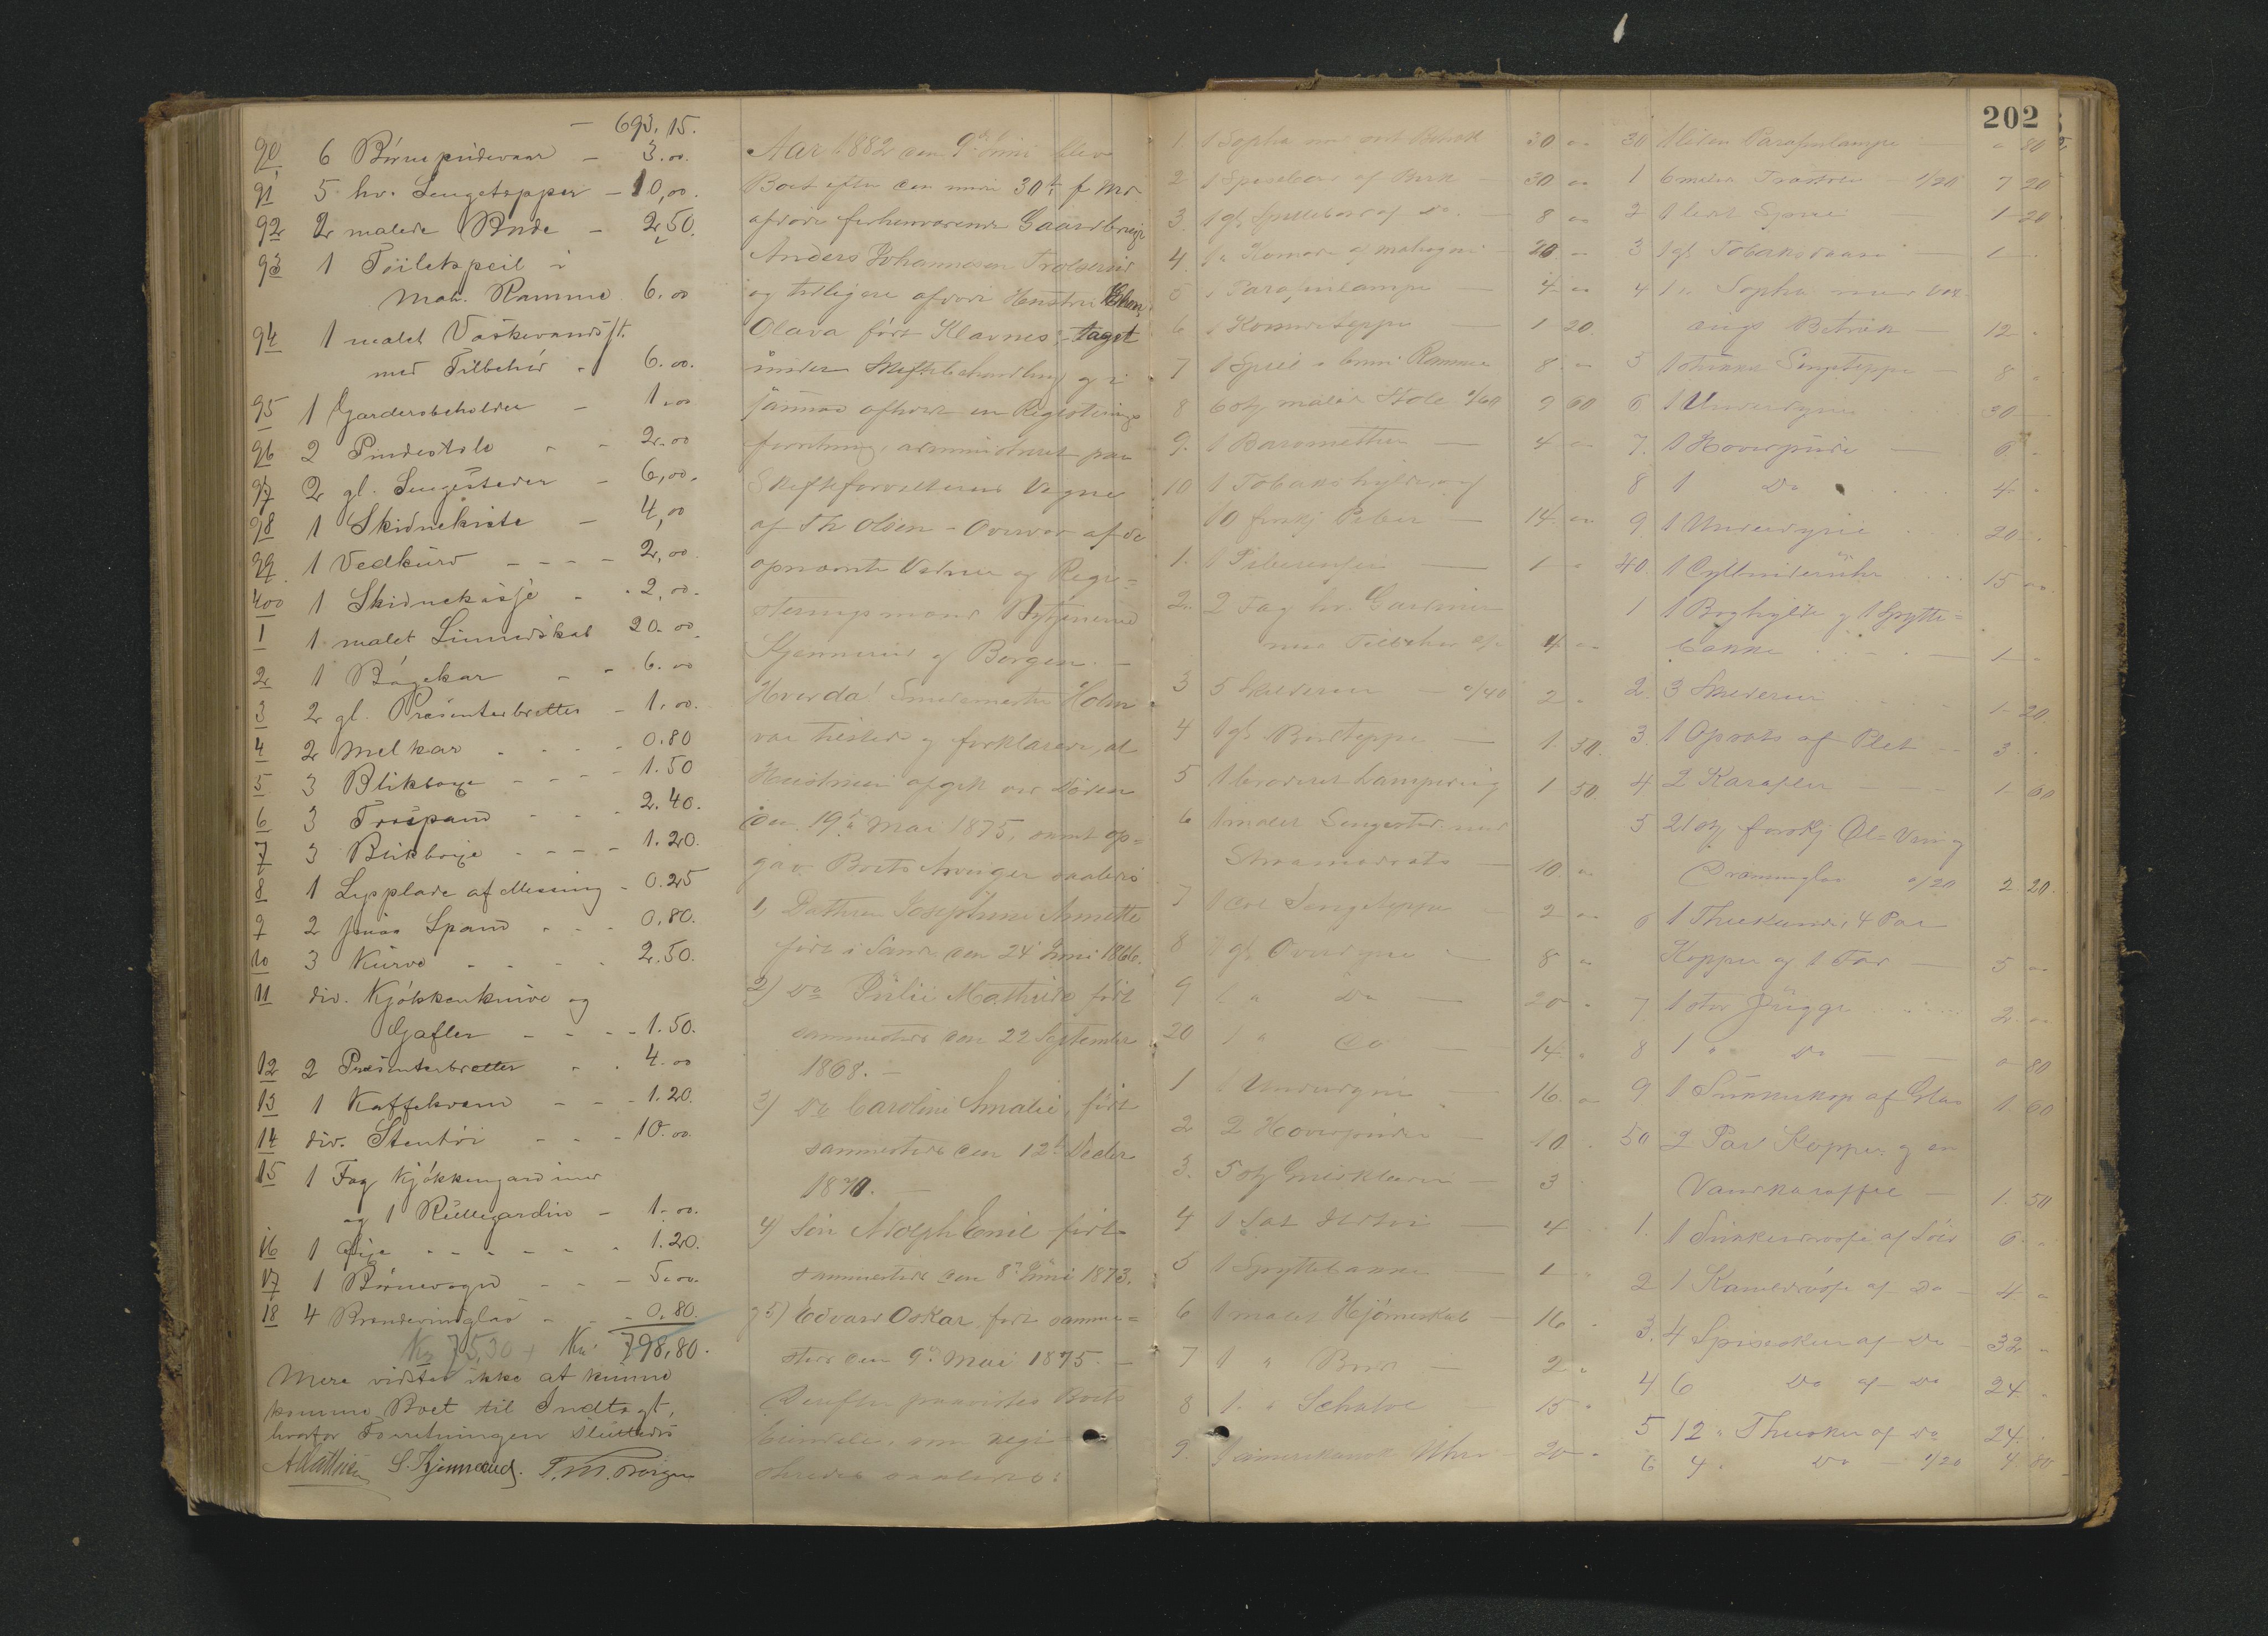 693.15.
90 6 Börnepudevaar – 3.00.
91 5 hv. Sengetepper – 10,00.
92 2 malede Borde – 2,50.
93 1 Toiletspeil i
Mah. Ramme 6.00
94 1 malet Vaskevandsst.
med Tilbehör 6.00.
95 1 Garderobeholder – 1.00
96 2 Pindestole - - 2.00
97 2 gl. Sengesteder – 6,00.
98 1 Skidnekiste – 4,00
99 1 Vedkurv - - - - 2,00
400 1 Skidnekasse - - 2,00.
1 1 malet Linnedskab 20.00.
2 1 Bögekar - - 6.00
3 2 gl. Præsenterbretter – 1.00.
4 2 Melkar - - - 0.80
5 3 Blikboxe - - - - 1.50
6 3 Träspand - - - 2.40.
7 3 Blikboxe - - - - 1.20.
8 1 Lysplade af Messing - 0.25
9 2 Spand - - - 0.80.
10 3 Kurve - - - - 2.50.
11 div. Kjökkenknive og
Gafler - - - - 1.50.
12 2 Præsenterbretter - - 4.00
13 1 Kaffekvern - - - 1.20.
14 div. Stentöi - - - 10.00.
15 1 Fag Kjökkengardiner
og 1 Rullegardin – 1.00.
16 1 - - - - - - 1.20.
17 1 Börnevogn - - - 5.00.
18 4 Brændevinsglas - - - 0.80.
Kr 798,80.
Mere vidstes ikke at kunne
komme Boet til Indtægt,
hvorfor Forretningen sluttedes
AMathiesen S. Kjennerud. T.M. Borgen
Aar 1882 den 9de Juni blev
Boet efter den 30te f. Md.
afdöde forhenværende Gaardbruger
Anders Johannesen
og tidligere afdöde Hustru
Olava födt Klavnes, taget
under Skiftebehandling og i
samme afholdt en Registrerings
forretning, administreret paa
Skifteforvalterens Vegne
af Th. Olsen – Overvær af de
opnævnte Vidner og Regi-
streringsmænd
Kjennerud og Borgen. –
Hvorda! Smedemester Holm
var tilstede og forklarede, at
Hustruen afgik ved Döden
den 19de Mai 1875, samt op-
gav Boets Arvinger saaledes
1) Datteren Josephine Annette
födt i Sande den 24' Juni 1866.
2) Do Julie Mathilde födt
sammesteds den 22 September
1868. –
3) Do Caroline Amalie, födt
sammesteds den 12te Decbr
1870. –
4) Sön Adolph Emil födt
sammesteds den 8de Juni 1873.
og 5) Edvard Oskar, födt samme-
steds den 9de Mai 1875. –
Derefter paavistes Boets
Eiendele, som regi-
streredes saaledes:
1 1 Sopha med sort Betræk 30 00
2 1 Spisebord af Birk – 30 00
3 1 gl. Spillebord af Do. – 8 00
4 1 " Komode af mahogni – 20 00
5 1 Parafinlampe – 4 00
6 1 Komodeteppe – 1 20.
7 1 Speil i brun Ramme 8 00
8 6 stk malede Stole a/60 9 60
9. 1 Barometter – 4 00
10 1 Tobakshylde og
10 forskj. Piber – 14 00
1. 1 – 1 "
2. 2 Fag hv. Gardiner
med Tilbehör 4 00
3 5 Skilderier – a/40 2 "
4 1 gl. Bordteppe – 1. 50.
5 1 broderet Lampering 1 50.
6 1 malet Sengested med
10. 00
7 1 Sengeteppe – 2 00
8 1 gl. Overdyne – 8 00
9 1 " Do – 20 "
20 1 " Do – 14 "
1 1 Underdyne – 16. 00
2 2 Hovedpuder – 10 .
3. 5 stk – 3
4 1 – 4
5 1 Spyttebakke – 1 "
6 1 malet Hjörneskab – 16 "
7 1 " Bord – 2 "
8 1. " Schatol – 15 "
9. 1 amerikansk Uhr – 20 "
202
30 1 liden Parafinlampe – " 80
1 6 malede Træstole – 1/20 7 20
2 1 lidet Speil – 1 20
3 1 gl. Tobaksdaase – 1 –
4 1 " Sopha med
Betræk – 12 "
5 1 Sengeteppe – 8 "
6 1 Underdyne 30 –
7. 1 Hovedpude – 6 "
8 1 Do 4 "
9 1 Underdyne 20 "
40. 1 Cylinderuhr 15 00
1 1 Boghylde og 1 Spytte-
bakke – 1 "
2. 3 Skilderier 1 20.
3. 1 Opsats af Plet – 3 "
4 2 Karafler – 1 60
5 21 stk forskj. Öl- Vin og
Drammeglas a/20 2 20.
6 1 Thekande, 4 Par
Kopper og 1 Fad – 5 00
7 1 stor Jugge 2 00
8 1 " Do – 0 80
9 1 Sukkerkop af Glas 1 60
50 2 Par Kopper og en
Vandkaraffel – 1. 50
1. 1 Sukker af Sölv 6 "
2 1 af Do – 4 "
3. 4 Spiseskeer af Do – 32 "
4 6 Do af Do 24 "
5 12 " Theskeer af Do 24.
6 4 " Do – 1/20 4. 80